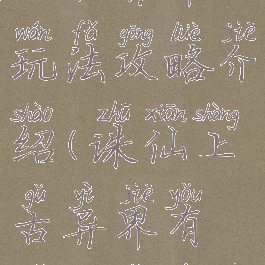 wán fǎ gōng lüè jiè
玩法攻略介
shào zhū xiān shàng
绍(诛仙上
gǔ yì jiè yǒu
古异界有